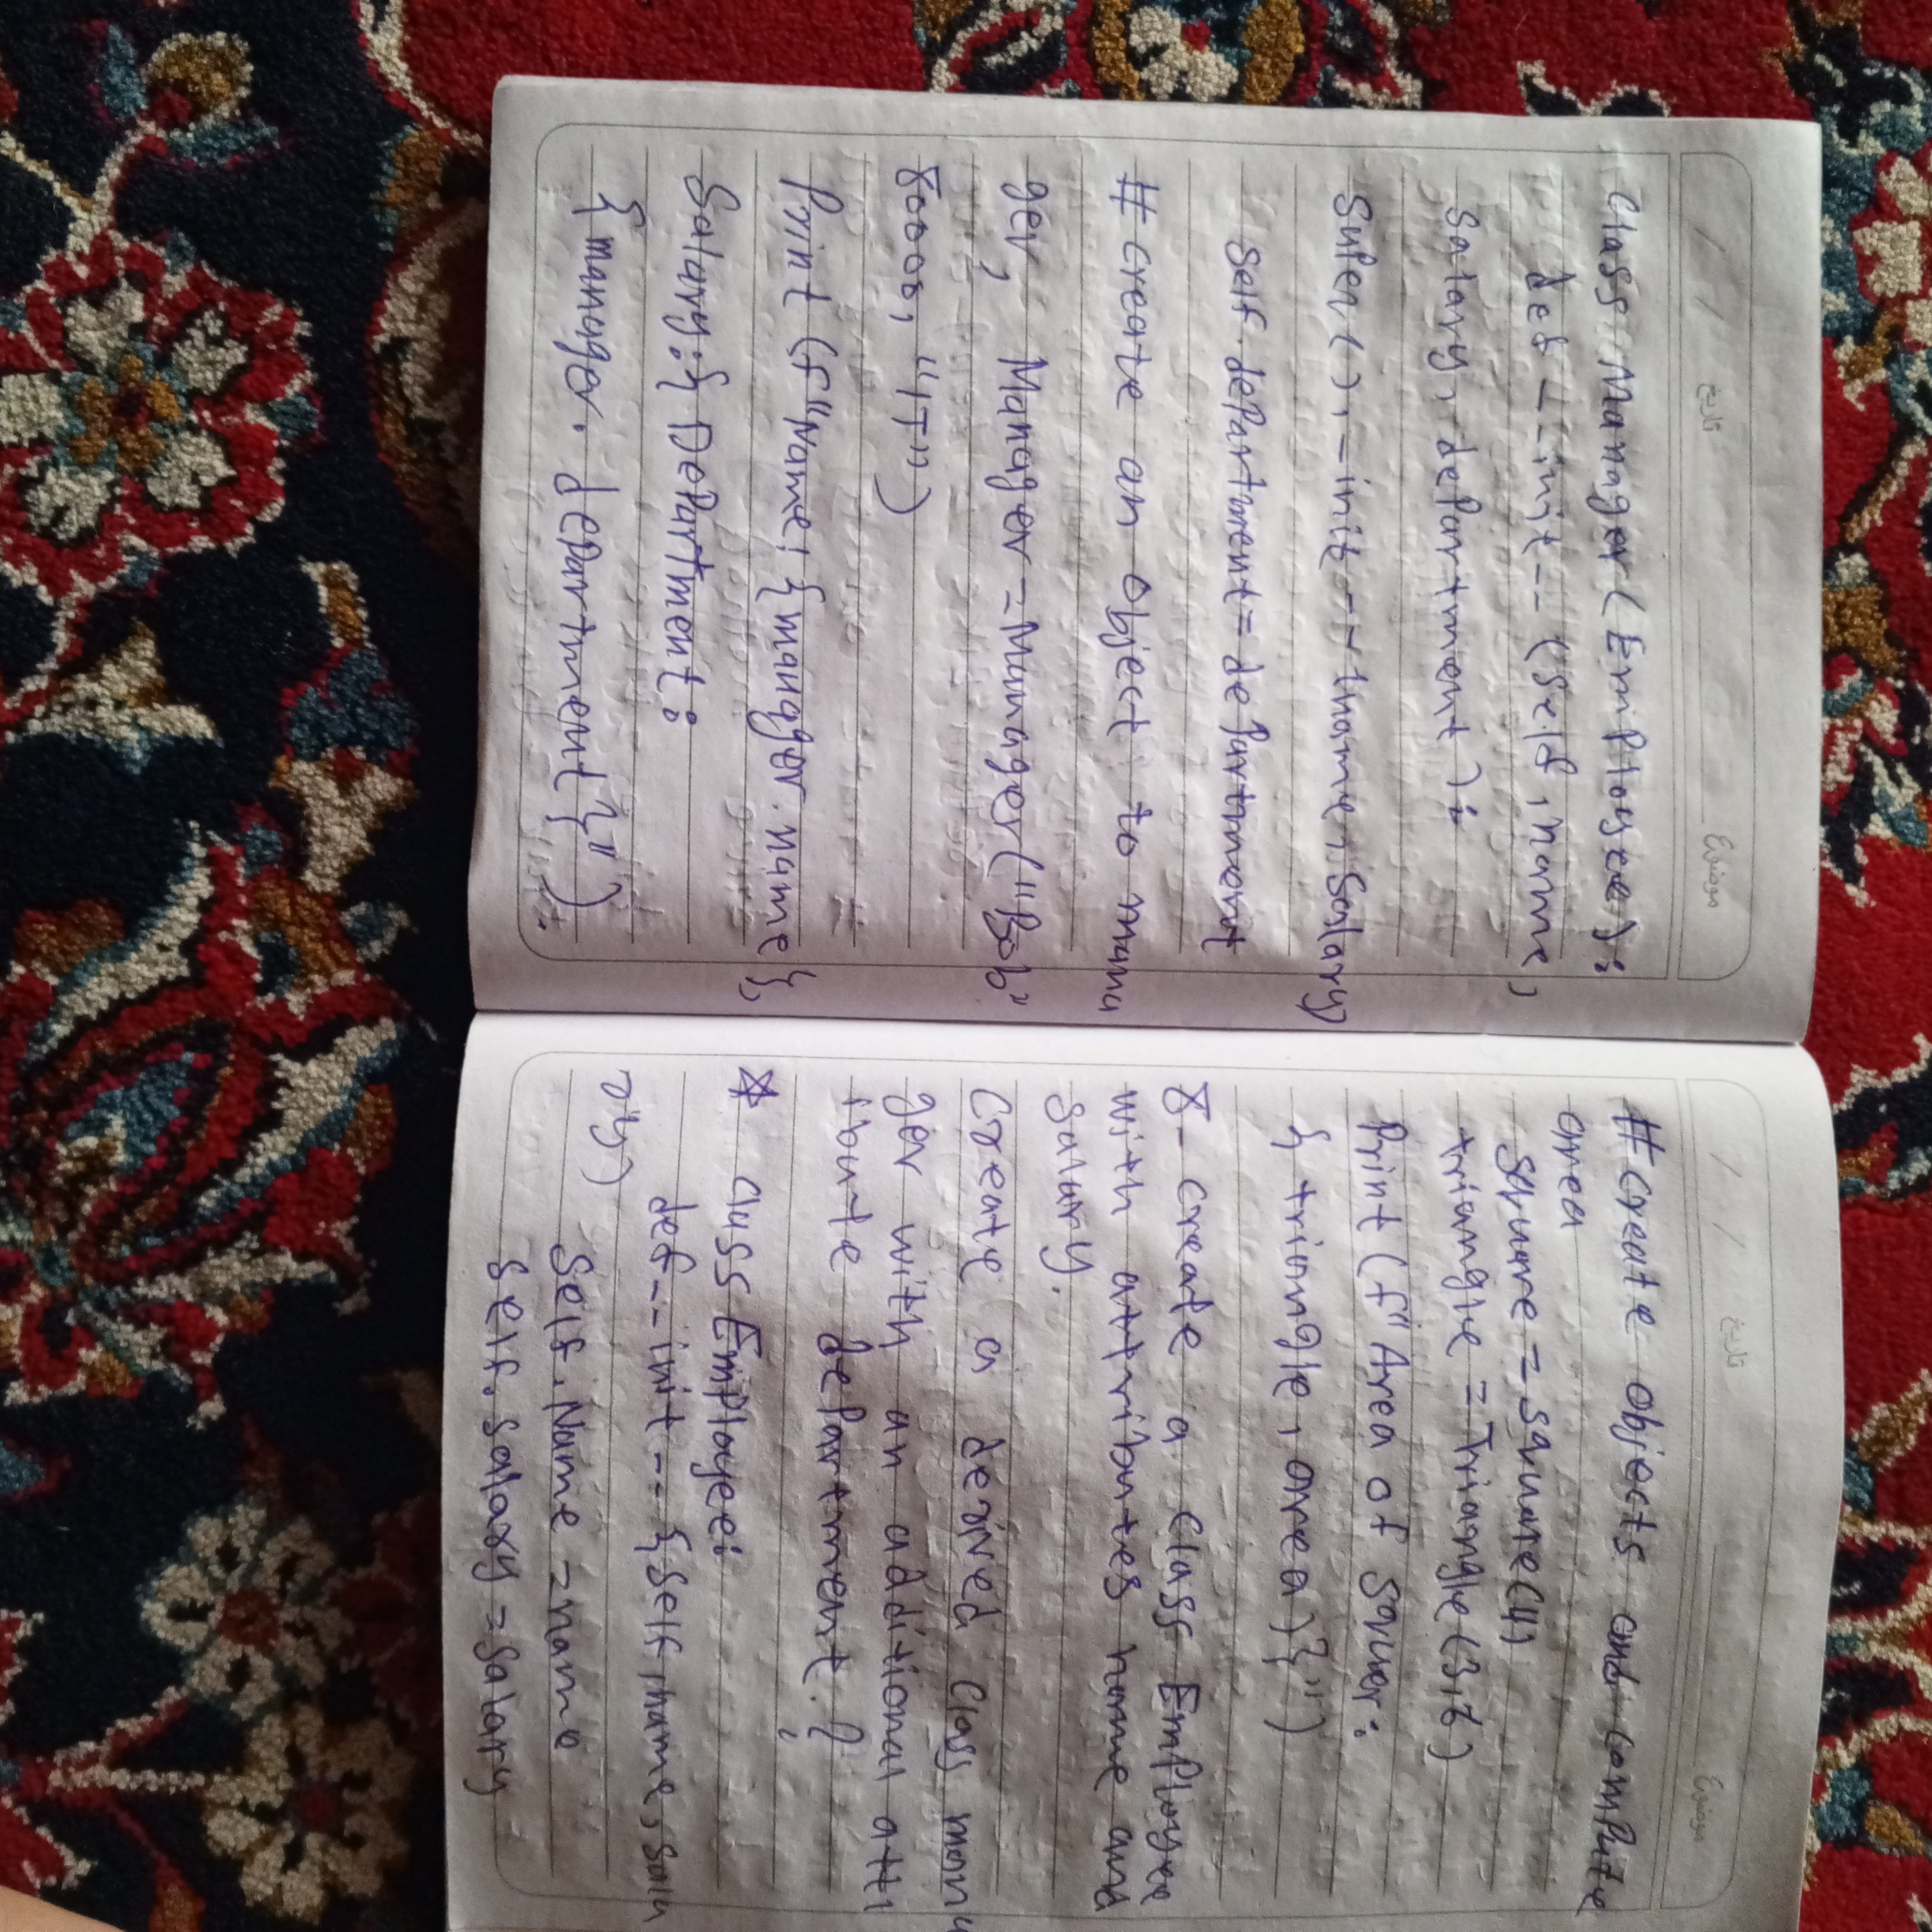 تاریخ
موضوع
class Manager(Employee):
def __init__(self, name,
salary, department):
super().-init--(name, salary)
self.department = department
# create an object to mana
ger, Manager = Manager("Bob"
80000, "IT")
Print (f"Name: {manager.name},
Salary:{ Department:
{manager. department}")
تاریخ
موضوع
#create objects and compute
area
square = square(4)
triangle = Triangle(3,6)
Print (f"Area of squer:
{triangle, area)}")
8- create a class Employee
with attributes name and
salary.
Create a derived class mana
ger with an additional att
ibute department.?
☆ class Employee:
def -- init -- {self, name, sala
ry)
Self.Name = name
Self.salary = salary